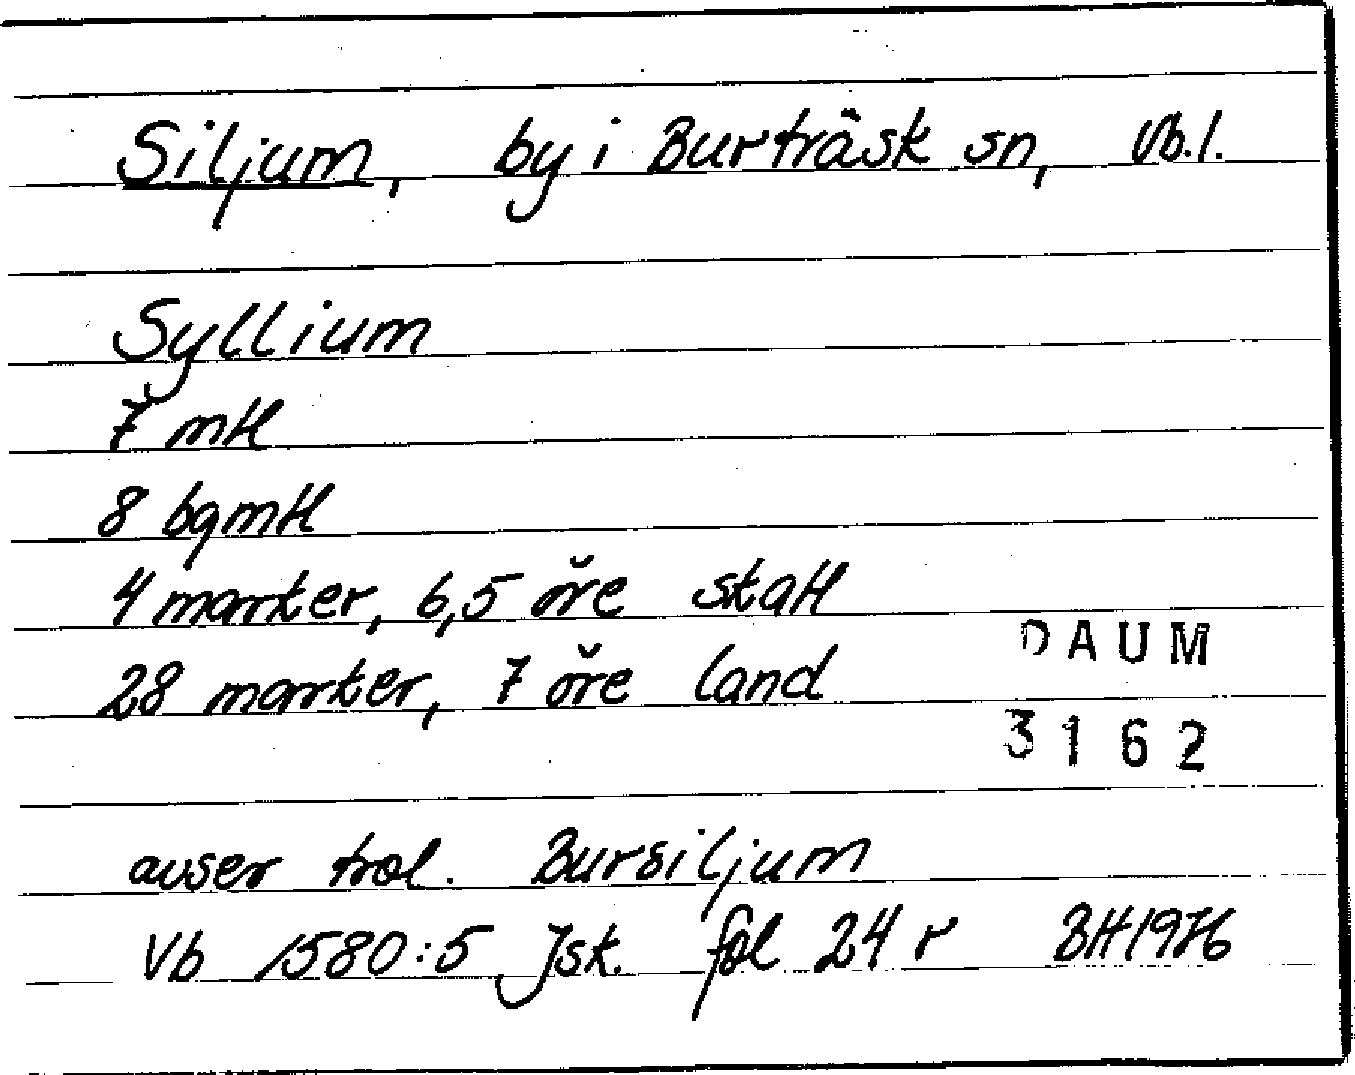 Siljum, by i Burträsk sn, Vb.l.
Syllium
7 mtl
8 bgmtl
4 marker, 6,5 öre skatt
28 marker, 7 öre land
DAUM
3162
avser trol. Bursiljum
Vb 1580:5 Jsk. fol 24 r BH 1976